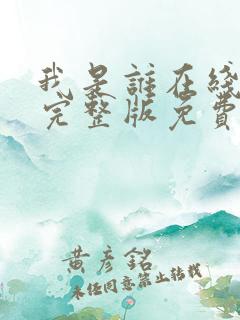 我是誰在綫
完整版免費
黃彥銘
未经同意禁止转载